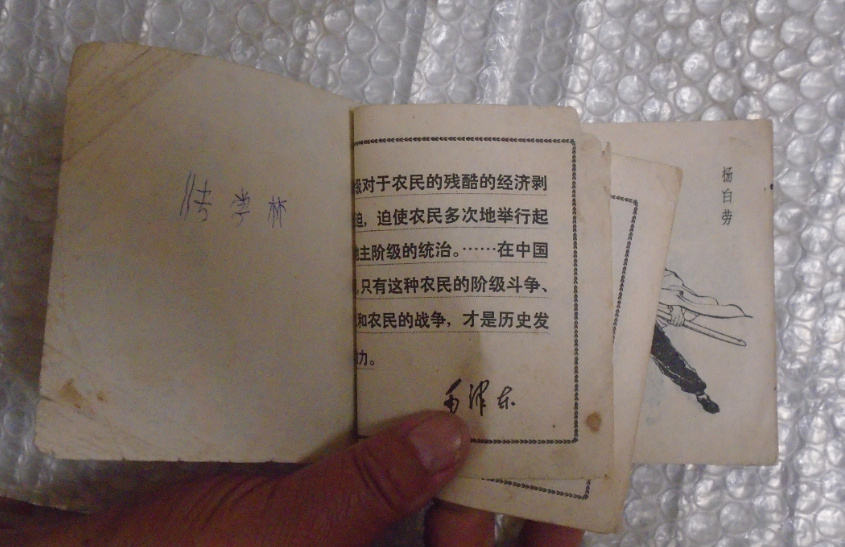 学林
级对于农民的残酷的经济剥
迫，迫使农民多次地举行起
地主阶级的统治。……在中国
，只有这种农民的阶级斗争、
和农民的战争，才是历史发
力。
毛泽东
杨白劳